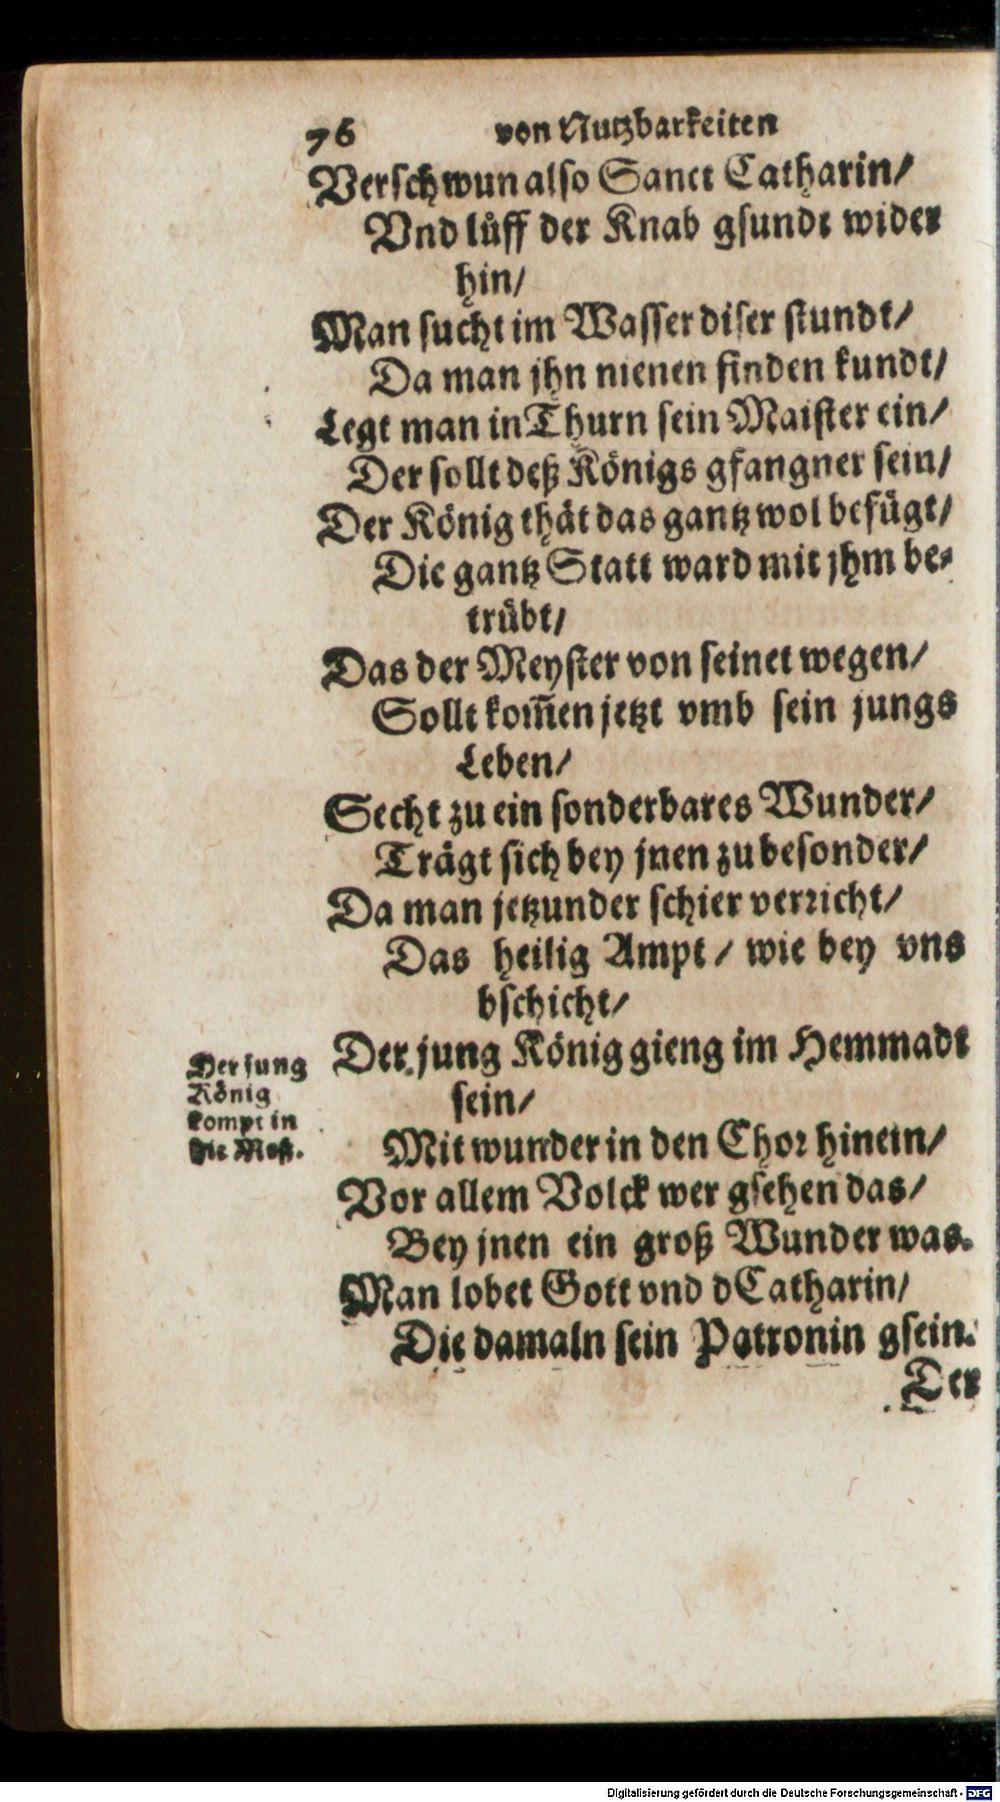 76 von Nutzbarkeiten
Verschwun also Sanct Catharin/
Vnd lüff der Knab gsundt wider
hin/
Man sucht im Wasser diser stundt/
Da man jhn nienen finden kundt/
Legt man in Thurn sein Maister ein/
Der sollt deß Königs gfangner sein/
Der König thät das gantz wol befügt/
Die gantz Statt ward mit jhm be-
trübt/
Das der Meyster von seinet wegen/
Sollt kom̃en jetzt vmb sein jungs
Leben/
Secht zu ein sonderbares Wunder/
Trägt sich bey jnen zu besonder/
Da man jetzunder schier verricht/
Das heilig Ampt / wie bey vns
bschicht/
Der jung König gieng im Hemmadt
sein/
Der jung
König
kompt in
die Mess.
Mit wunder in den Chor hinein/
Vor allem Volck wer gsehen das/
Bey jnen ein groß Wunder was.
Man lobet Gott vnd dCatharin/
Die damaln sein Patronin gsein.
Der
Digitalisierung gefördert durch die Deutsche Forschungsgemeinschaft - DFG